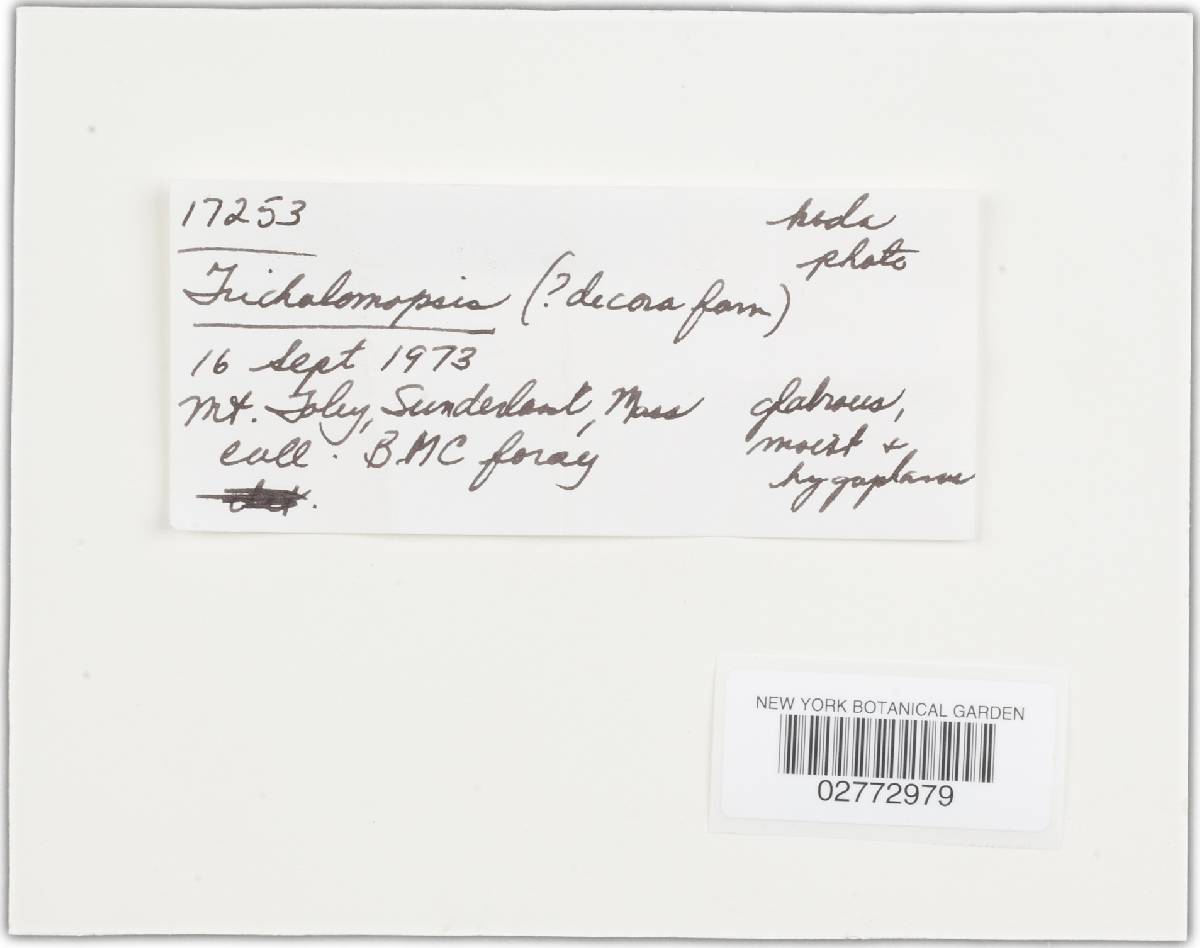 17253
koda
photo
Tricholomopsis (?decora form)
16 Sept 1973
Mt. Toby, Sunderland, Mass
coll. BMC foray
det.
glabrous,
moist +
hygrophanous
NEW YORK BOTANICAL GARDEN
02772979